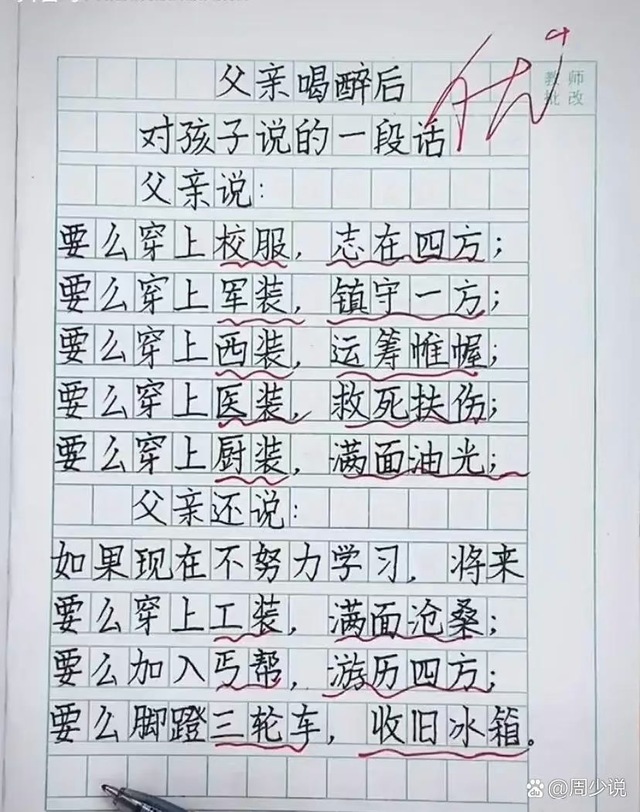 父亲喝醉后
对孩子说的一段话
优
教师
批改
父亲说:
要么穿上校服,志在四方;
要么穿上军装,镇守一方;
要么穿上西装,运筹帷幄;
要么穿上医装,救死扶伤;
要么穿上厨装,满面油光;
父亲还说:
如果现在不努力学习,将来
要么穿上工装,满面沧桑;
要么加入丐帮,游历四方;
要么脚蹬三轮车,收旧冰箱。
@周少说